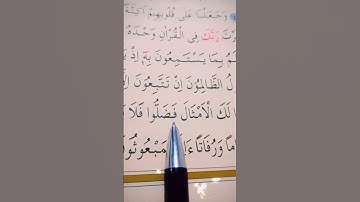 وَجَعَلْنَا عَلٰى قُلُوبِهِمْ اَكِنَّةً
رَبَّكَ فِى الْقُرْاٰنِ وَحْدَهُ
بِمَا يَسْتَمِعُونَ بِهٖٓ اِذْ
الظَّالِمُونَ اِنْ تَتَّبِعُونَ
لَكَ الْاَمْثَالَ فَضَلُّوا فَلَا
وَرُفَاتًا ءَاِ